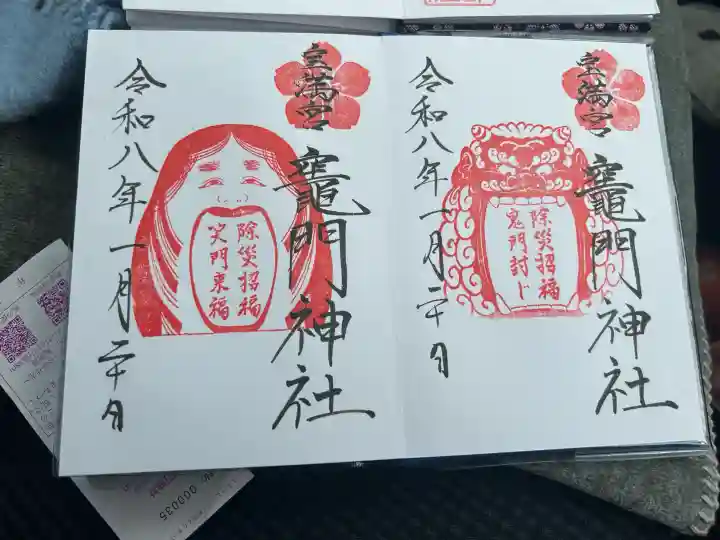 宝満宮
竈門神社
除災招福
鬼門封じ
令和八年一月二十日
宝満宮
竈門神社
除災招福
笑門来福
令和八年一月二十日
000035